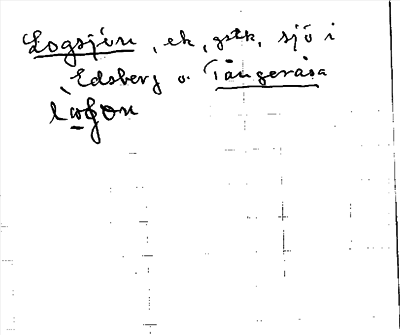 Logsjön, ek, gstk, sjö i
Edsberg o. Tångeråsa